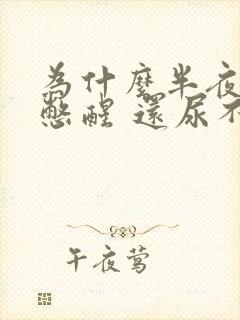 為什麼半夜
憋醒 還尿不
午夜莺